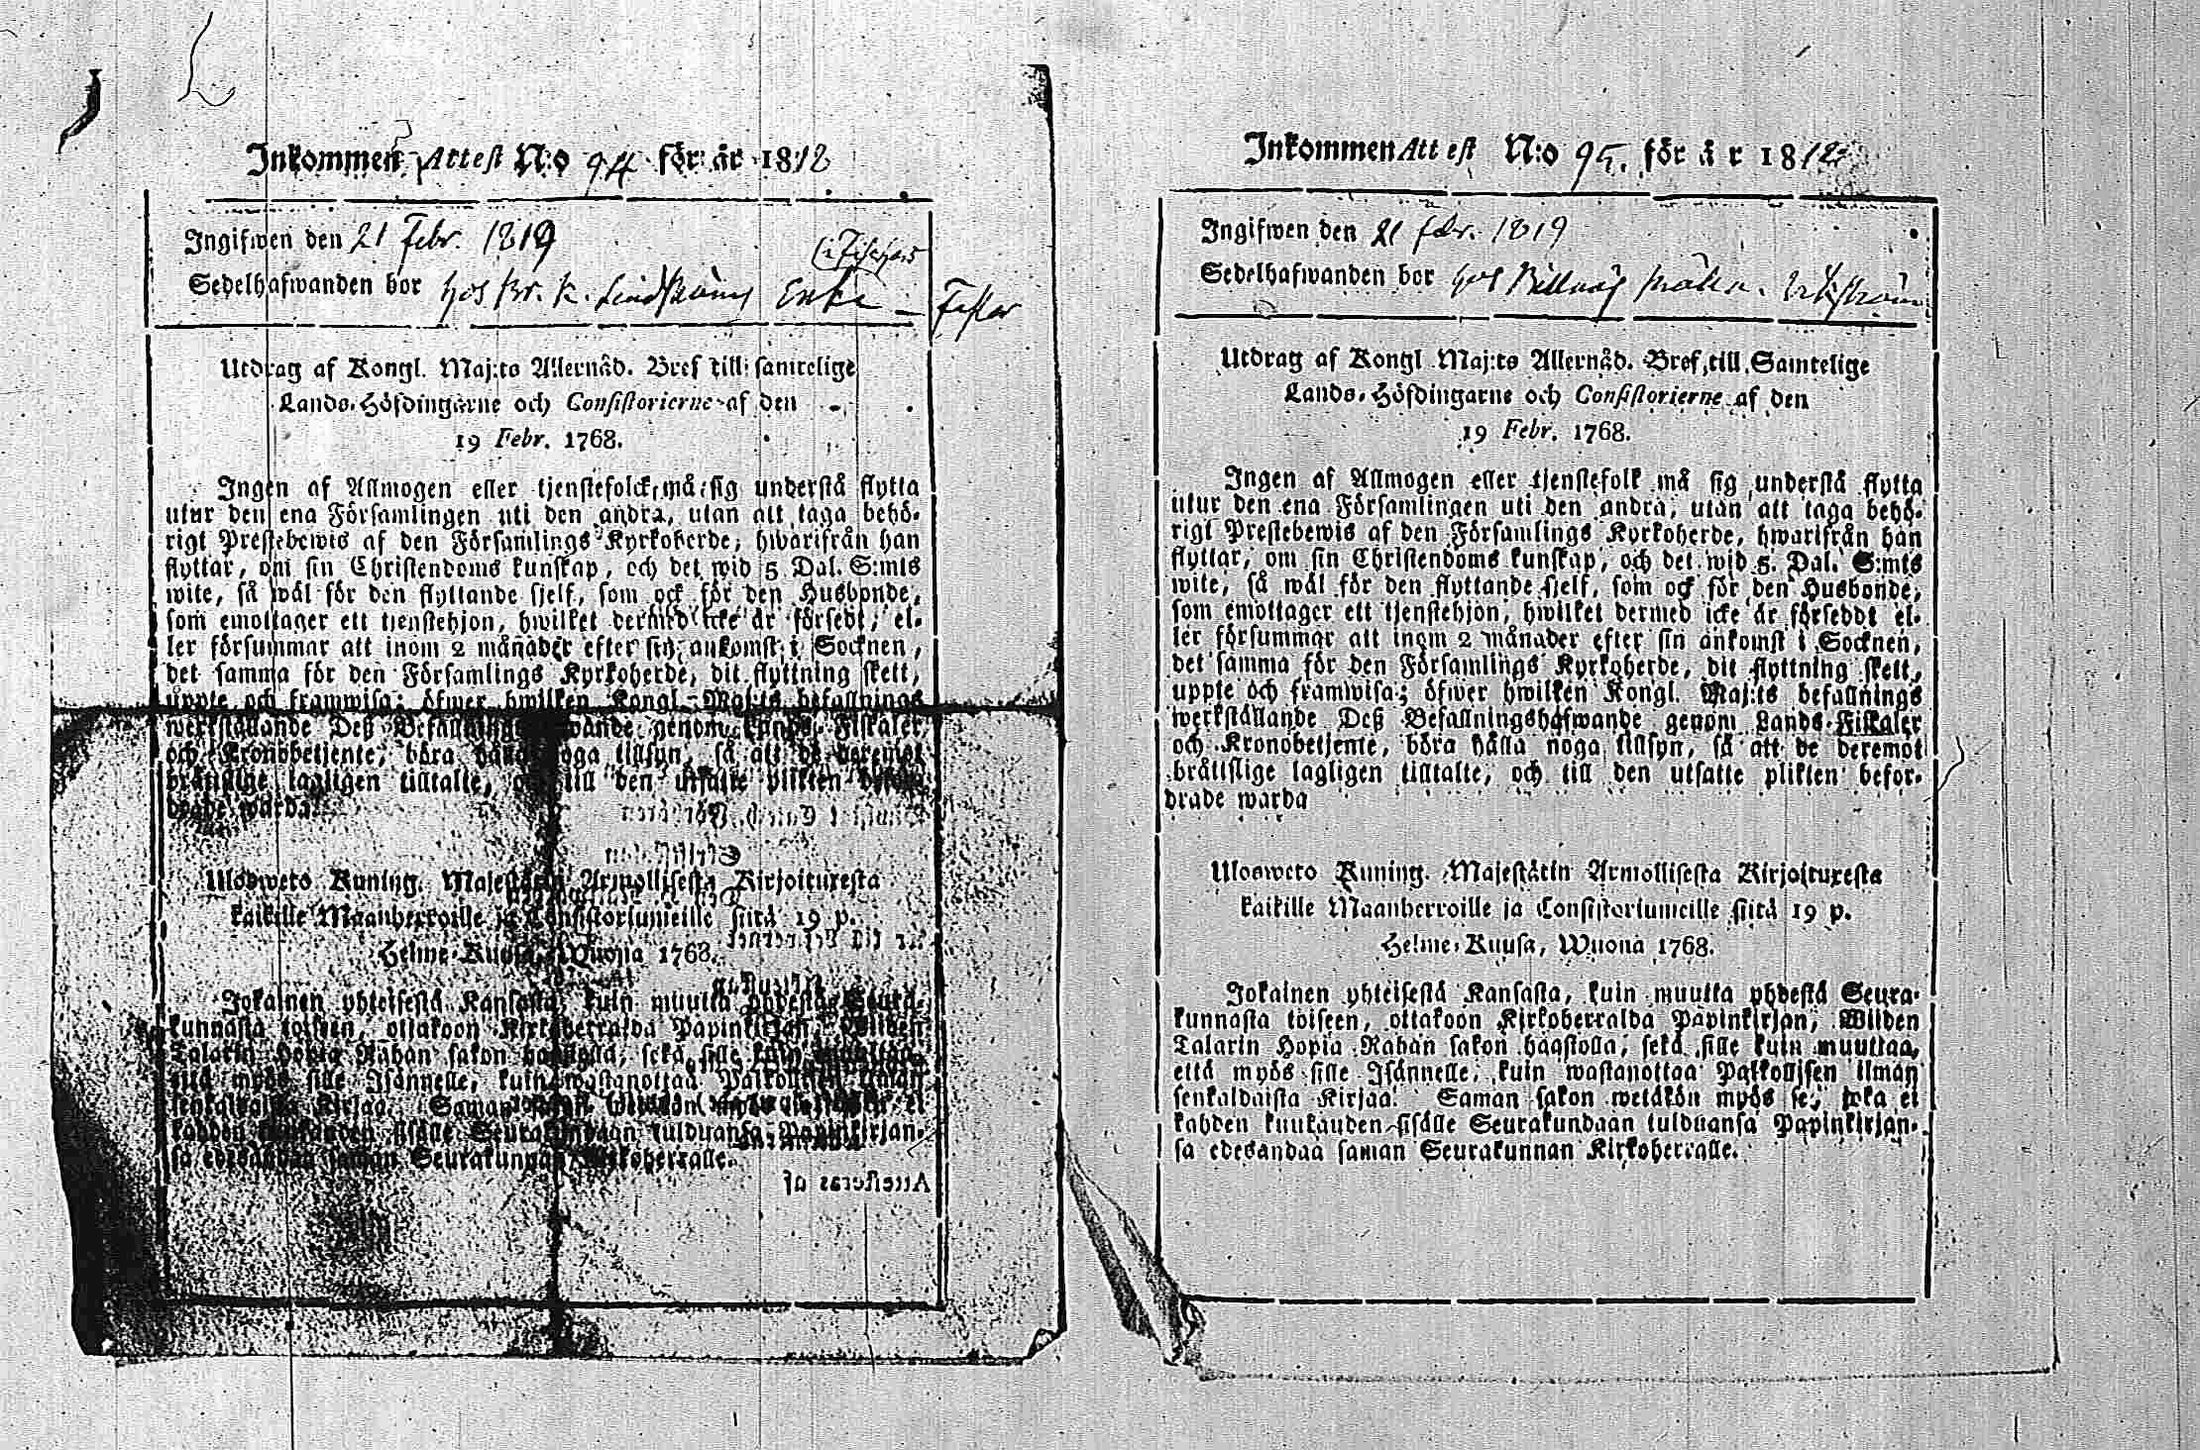 Inkommen Attest N:o 94 för år 1812
Ingifwen den 21 Febr. 1819
Sedelhafwanden bor hos Br. K. Lindströms Enka
Utdrag af Kongl. Maj:ts Allernåd. Bref till samtelige
Lands-Höfdingarne och Consistorierne af den
19 Febr. 1768.
Ingen af Allmogen eller tjenstefolck må sig understå flytta
utur den ena Församlingen uti den andra, utan att taga behö-
rigt Prestebewis af den Församlings Kyrkoherde, hwarifrån han
flyttar, om sin Christendoms kunskap, och det wid 5 Dal. S:mts
wite, så wäl för den flyttande sjelf, som ock för den Husbonde,
som emottager ett tjenstehjon, hwilket dermed icke är försedt, el-
ler försummar att inom 2 månader efter sin ankomst i Socknen,
det samma för den Församlings Kyrkoherde, dit flyttning skett,
uppte och framwisa; öfwer hwilken Kongl. Maj:ts befallnings
werkställande Deß Befallningshafwande genom Lands-Fiskaler
och Kronobetjente, böra hålla noga tillsyn, så att de deremot
bråttslige lagligen tilltalte, och till den utsatte plikten befor-
drade warda.
Ulosweto Kuning. Majestätin Armollisesta Kirjoituxesta
kaikille Maanherroille ja Consistoriumeille siitä 19 p.
Helme-Kuusa, Wuona 1768.
Jokainen yhteisestä Kansasta, kuin muutta yhdestä Seura-
kunnasta toiseen, ottakoon Kirkoherralda Papinkirjan, Wiiden
Talarin Hopia Rahan sakon haastolla, sekä sille kuin muuttaa,
että myös sille Isännelle, kuin wastanottaa Palkollisen ilman
senkaldaista Kirjaa. Saman sakon wetäkön myös se, joka ei
kahden kuukauden sisälle Seurakundaan tulduansa Papinkirjan-
sa edesandaa saman Seurakunnan Kirkoherralle.
Attesteras af
Inkommen Attest N:o 95. för år 1812
Ingifwen den 21 febr. 1819
Sedelhafwanden bor hos
Utdrag af Kongl. Maj:ts Allernåd. Bref till Samtelige
Lands-Höfdingarne och Consistorierne af den
19 Febr. 1768.
Ingen af Allmogen eller tjenstefolk må sig understå flytta
utur den ena Församlingen uti den andra, utan att taga behö-
rigt Prestebewis af den Församlings Kyrkoherde, hwarifrån han
flyttar, om sin Christendoms kunskap, och det wid 5. Dal. S:mts
wite, så wäl för den flyttande sjelf, som ock för den Husbonde,
som emottager ett tjenstehjon, hwilket dermed icke är förseddt el-
ler försummar att inom 2 månader efter sin ankomst i Socknen,
det samma för den Församlings Kyrkoherde, dit flyttning skett,
uppte och framwisa; öfwer hwilken Kongl. Maj:ts befallnings
werkställande Deß Befallningshafwande genom Lands-Fiskaler
och Kronobetjente, böra hålla noga tillsyn, så att de deremot
bråttslige lagligen tilltalte, och till den utsatte plikten befor-
drade warda
Ulosweto Kuning. Majestätin Armollisesta Kirjoituxesta
kaikille Maanherroille ja Consistoriumeille siitä 19 p.
Helme-Kuusa, Wuona 1768.
Jokainen yhteisestä Kansasta, kuin muutta yhdestä Seura-
kunnasta toiseen, ottakoon Kirkoherralda Papinkirjan, Wiiden
Talarin Hopia Rahan sakon haastolla, sekä sille kuin muuttaa,
että myös sille Isännelle, kuin wastanottaa Palkollisen ilman
senkaldaista Kirjaa. Saman sakon wetäkön myös se, joka ei
kahden kuukauden sisälle Seurakundaan tulduansa Papinkirjan-
sa edesandaa saman Seurakunnan Kirkoherralle.